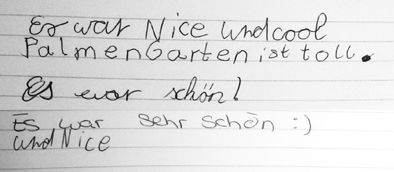 Es war Nice und cool
PalmenGarten ist toll.
Es war schön!
Es war sehr schön :)
und Nice